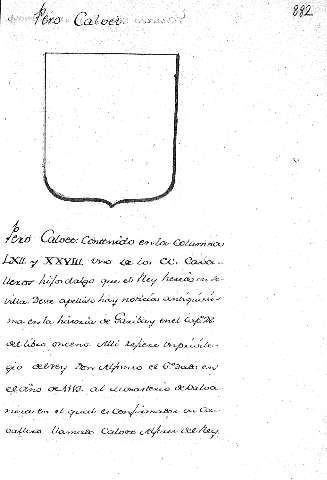 Pero Calvet
882
Pero Calvet: Contenido en la Columna
LXII. y XXVIII. Uno de los CC. Cava-
lleros hijosdalgo que el Rey heredo en Se-
villa. Deste apellido hay noticias antiquissi-
ma en la historia de Garibay en el
del libro onceno. Alli refiere un privile-
gio del rey Don Alfonso el 6º dado en
el año de 1113. al Monasterio de Valva
nera en el qual es Confirmador un Ca-
vallero llamado Calvet Alferez del Rey.